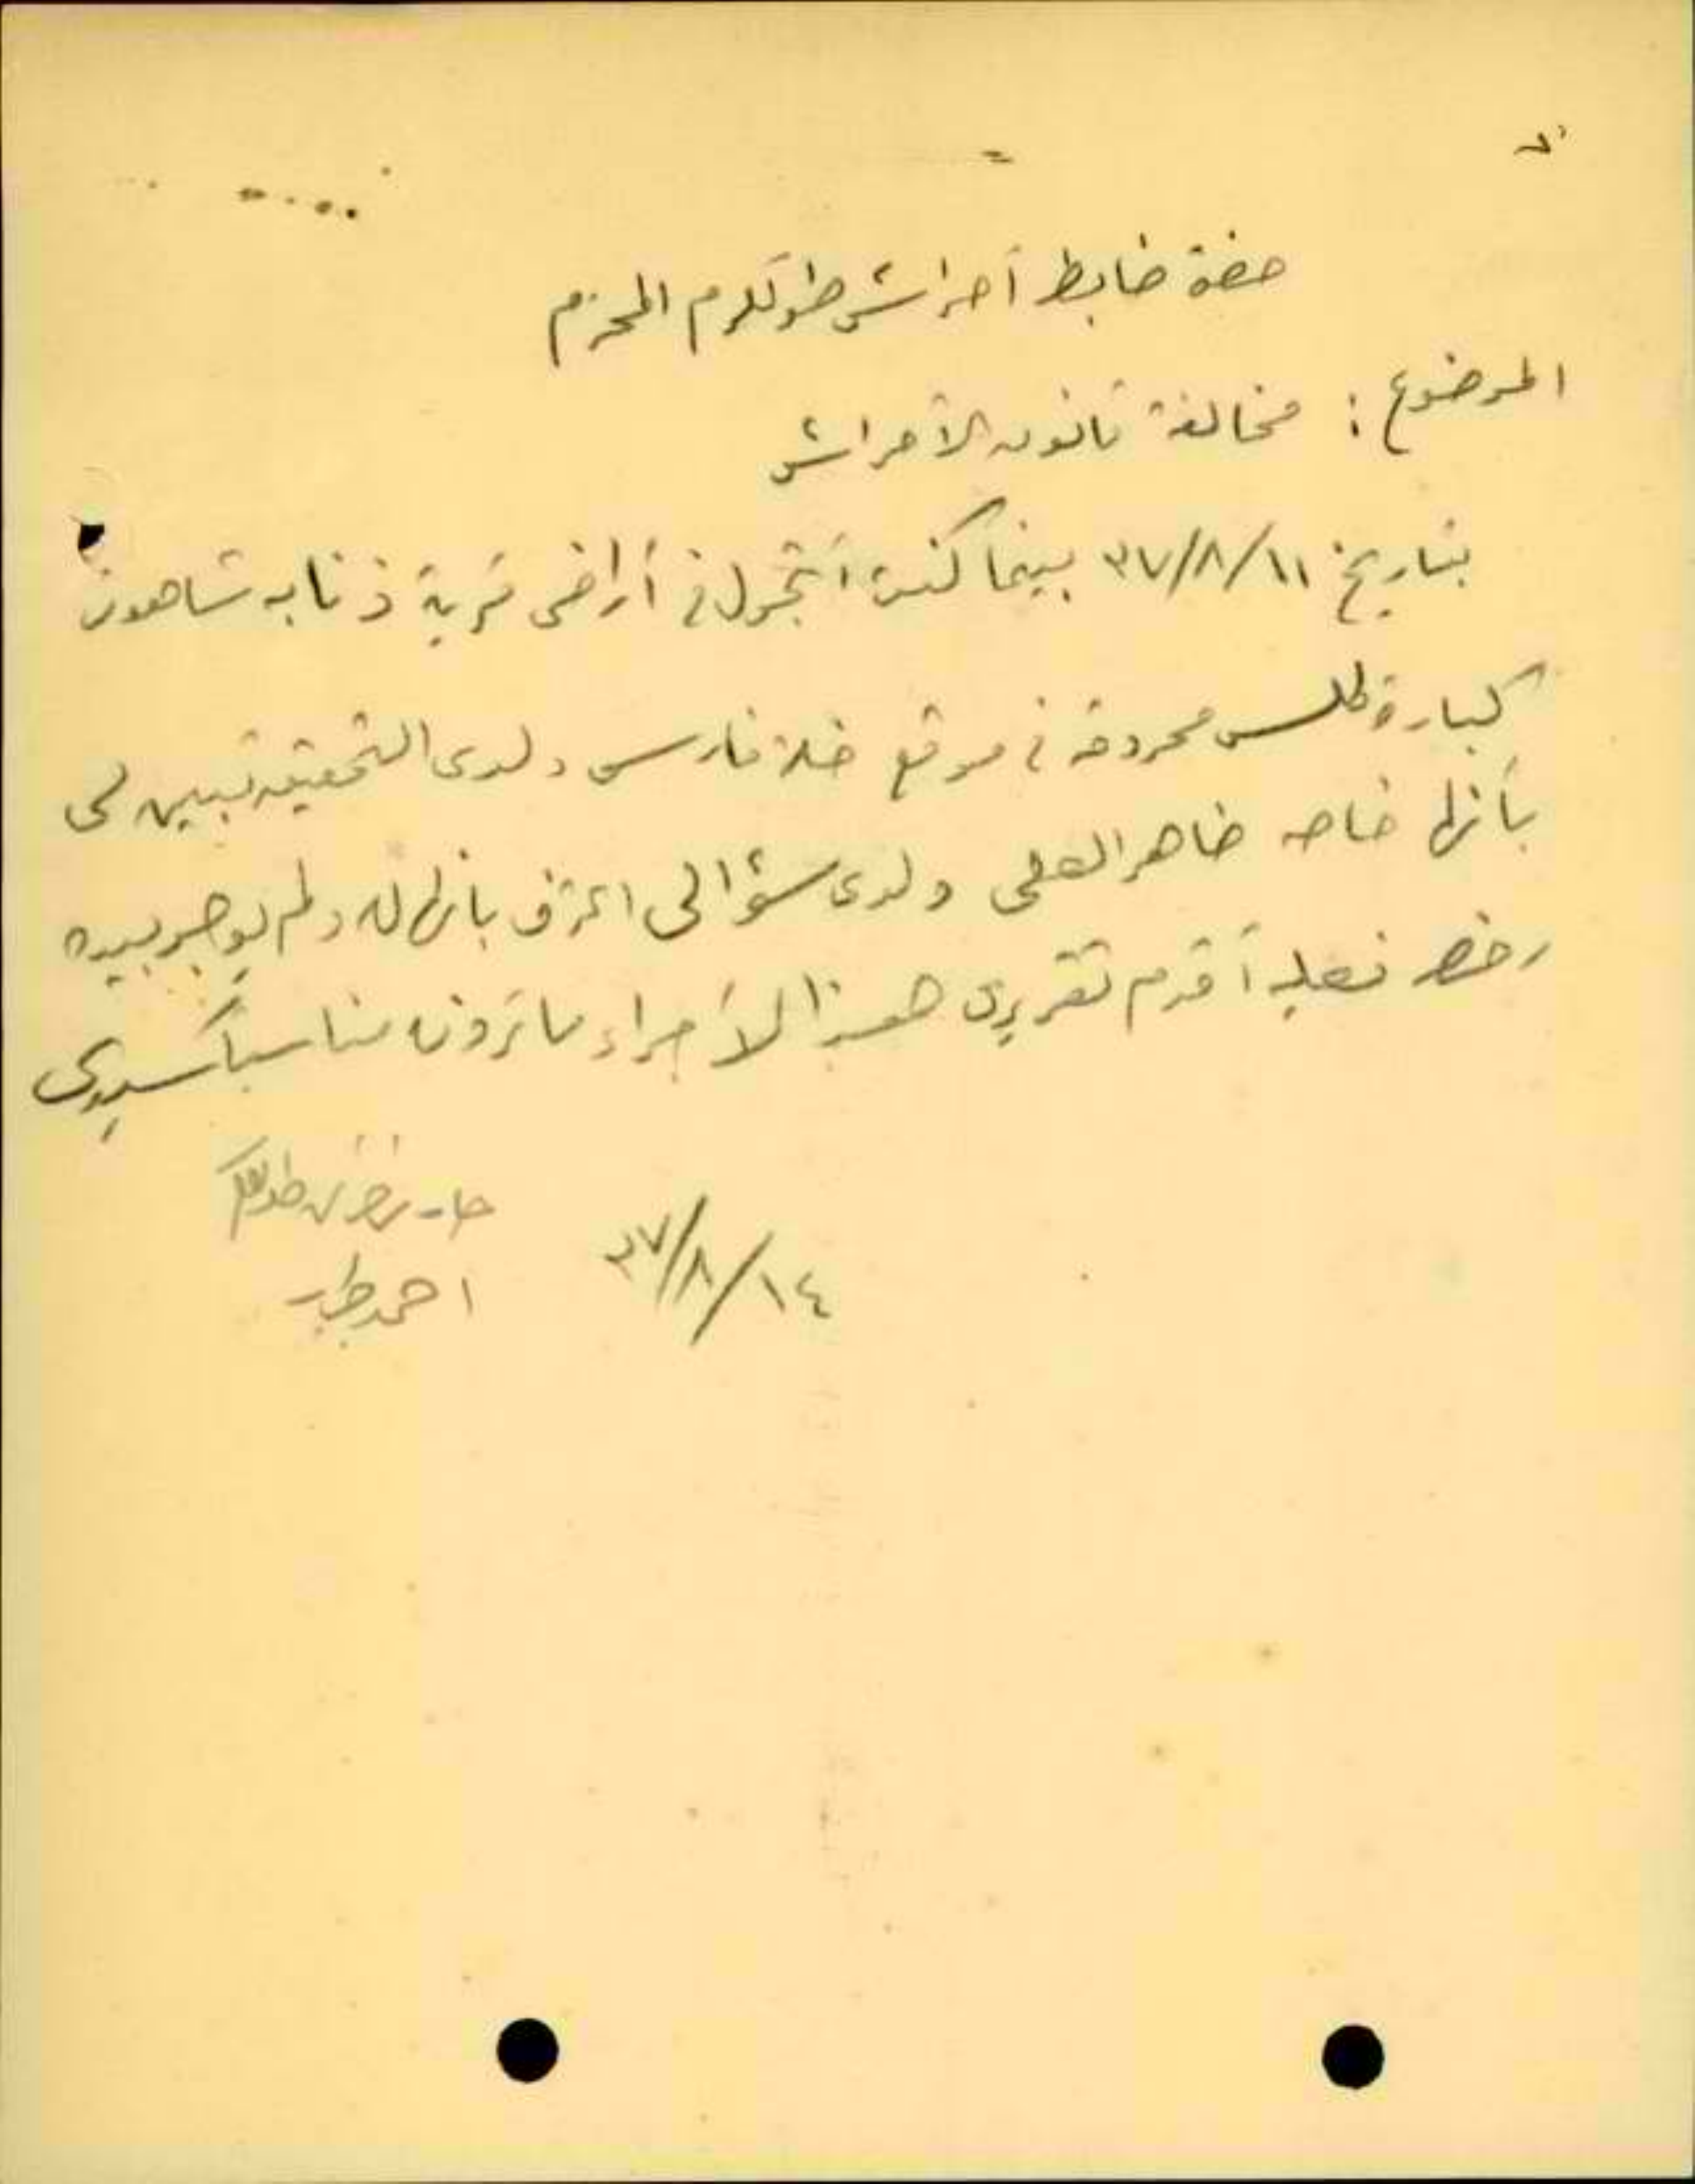 حضرة ضابط أحراش طولكرم المحترم
الموضوع : مخالفة قانون الأحراش
بتاريخ ٣٧/٨/١١ بينما كنت أتجول في أراضي قرية ذنابه شاهدت
كبارة كلس محروقه في موقع خلة فارس ولدى التحقيق تبين لي
بأنها خاصه ضاهر العلي ولدى سؤالي اعترف بأنها له ولم يوجد بيده
رخص فعليه أقدم تقريري هذا لأجراء ما ترونه مناسباً سيدي
٣٧/٨/١٤
احمد